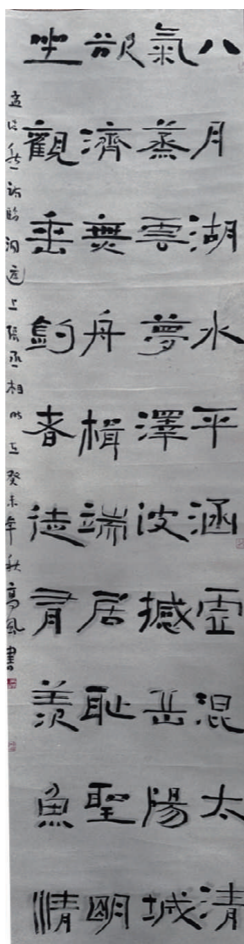 八月湖水平涵虛混太清
氣蒸雲夢澤波撼岳陽城
欲濟無舟楫端居恥聖明
坐觀垂釣者徒有羨魚情
孟浩然詩臨洞庭上張丞相以正癸未年秋高風書